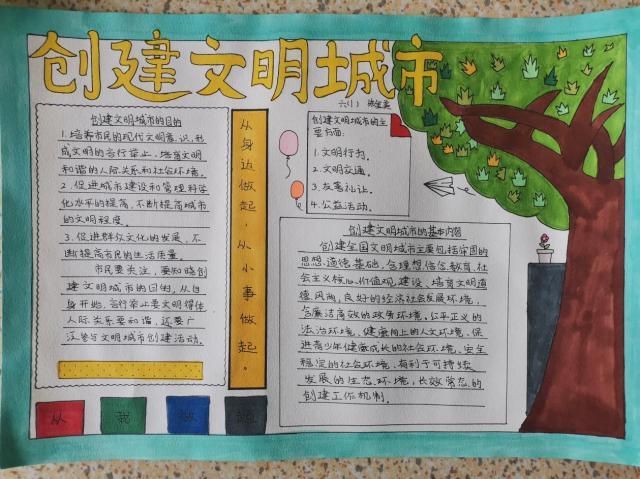 创建文明城市
六(1)
创建文明城市的目的
1.培养市民的现代文明意识,形
成文明的言行举止,培育文明
和谐的人际关系和社会环境。
2.促进城市建设和管理科学
化水平的提高,不断提高城市
的文明程度。
3.促进群众文化的发展,不
断提高市民的生活质量。
市民要关注,要知晓创
建文明城市的目的,从自
身开始,言行举止要文明得体
人际关系要和谐,还要广
泛参与文明城市创建活动。
从身边做起,从小事做起。
创建文明城市的主
要方面:
1.文明行为。
2.文明交通。
3.友善礼让。
4.公益活动。
创建文明城市的基本内容
创建全国文明城市主要包括牢固的
思想、道德、基础,含理想、信信、教育、社
会主义核心价值观、建设、培育文明道
德、风尚、良好的经济社会发展环境,
含廉洁高效的政务环境、公平正义的
法治环境、健康向上的人文环境、促
进青少年健康成长的社会环境、安全
稳定的社会环境、有利于可持续
发展的生态环境,长效常态的
创建工作机制。
从 我 做